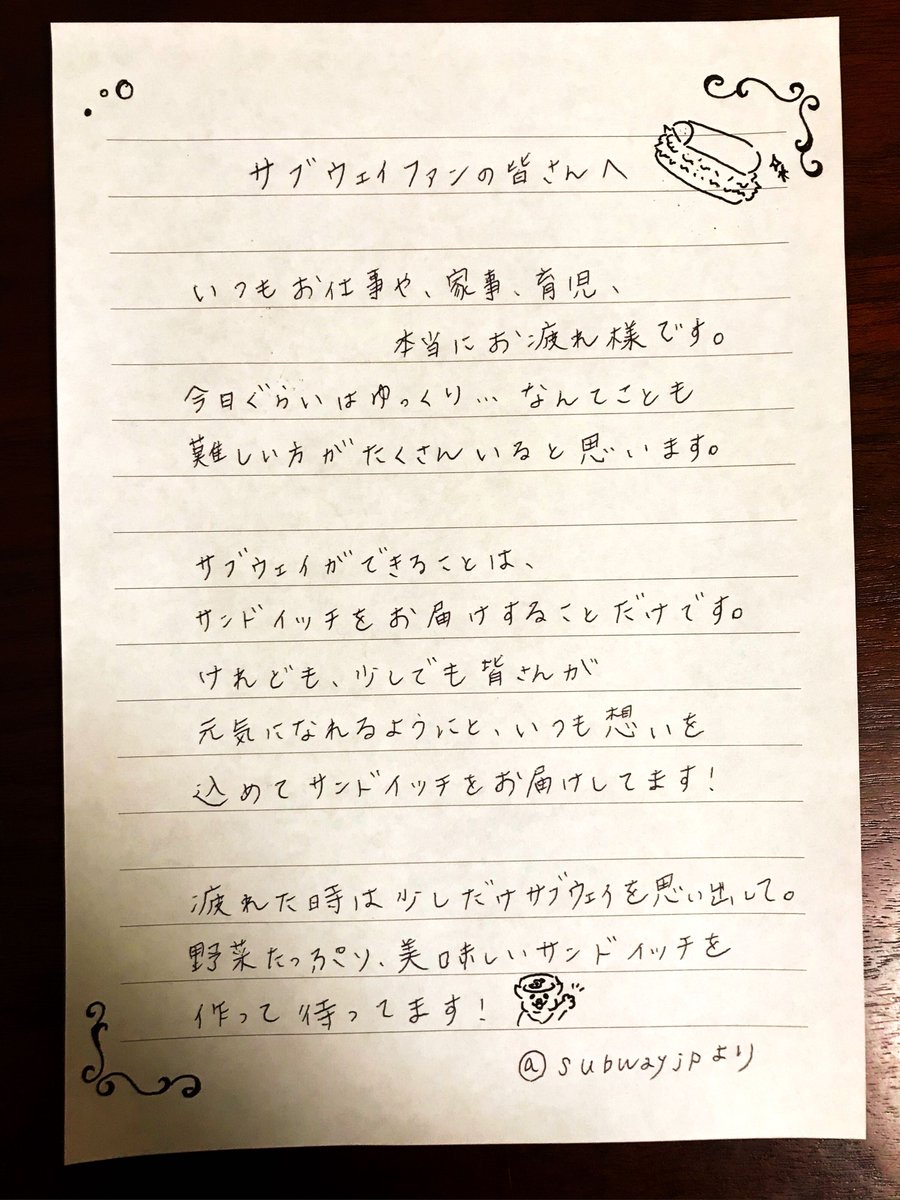 サブウェイファンの皆さんへ
いつもお仕事や、家事、育児、
本当にお疲れ様です。
今日ぐらいはゆっくり…なんてことも
難しい方がたくさんいると思います。
サブウェイができることは、
サンドイッチをお届けすることだけです。
けれども、少しでも皆さんが
元気になれるようにと、いつも想いを
込めてサンドイッチをお届けしてます!
疲れた時は少しだけサブウェイを思い出して。
野菜たっぷり、美味しいサンドイッチを
作って待ってます!
@subwayjpより